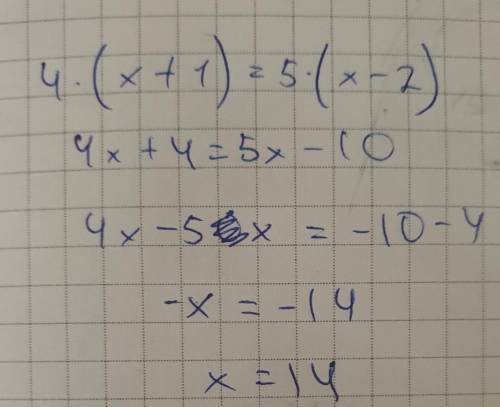 4·(x+1)=5·(x-2)
4x+4=5x-10
4x-5x=-10-4
-x=-14
x=14